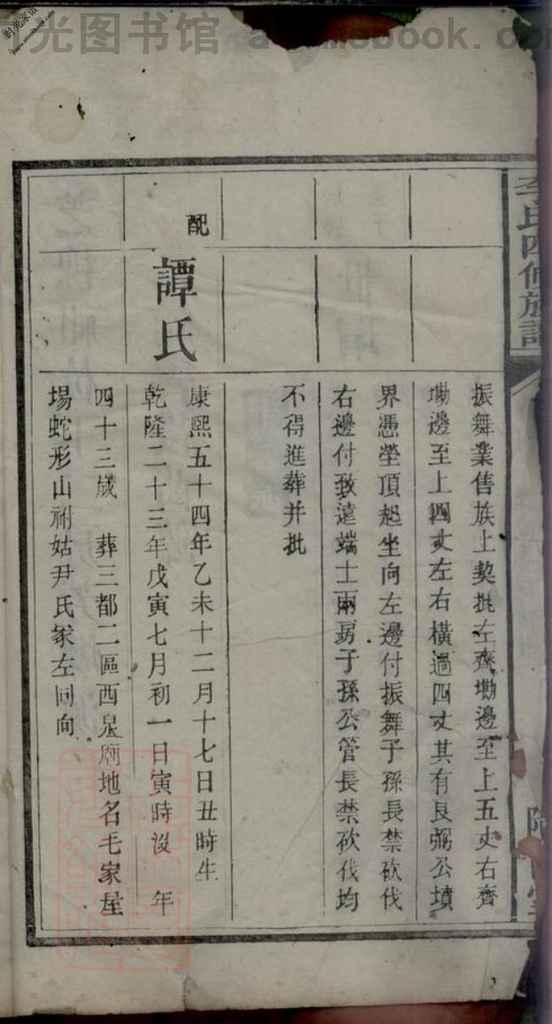 光图书馆
book.
李氏四修族譜
振舞業售族上契批左齊墈邊至上五丈右齊
墈邊至上四丈左右橫過四丈其有良弼公墳
界憑塋頂起坐向左邊付振舞子孫長禁砍伐
右邊付致遠端士兩房子孫公管長禁砍伐均
不得進葬并批
配
譚氏
康熙五十四年乙未十二月十七日丑時生
乾隆二十三年戊寅七月初一日寅時沒 年
四十三歲 葬三都二區西泉廟地名毛家屋
場蛇形山祔姑尹氏冢左同向